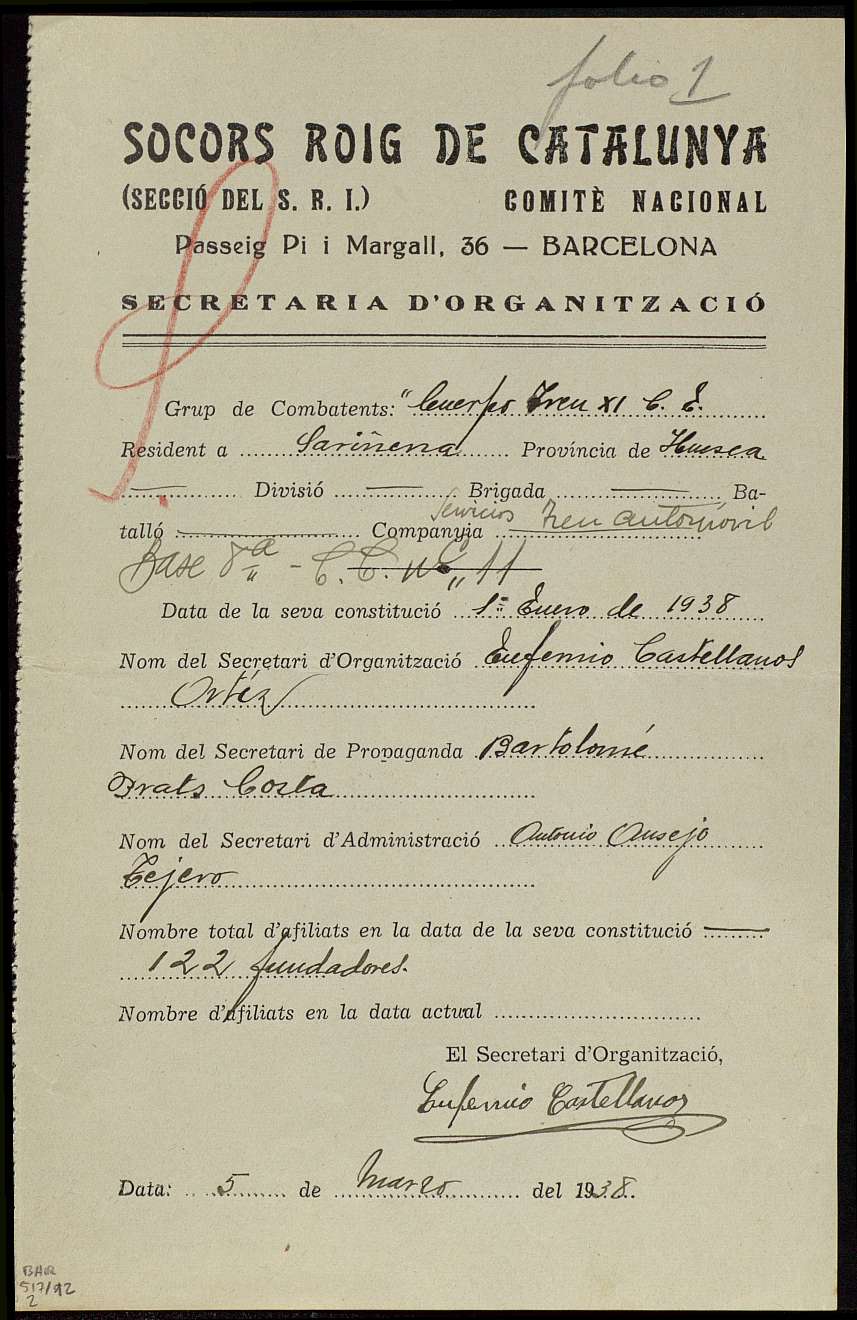 folio 1
SOCORS ROIG DE CATALUNYA
(SECCIÓ DEL S. R. I.) COMITÈ NACIONAL
Passeig Pi i Margall, 36 — BARCELONA
SECRETARIA D'ORGANITZACIÓ
Grup de Combatents: "Cuerpo Tren XI C. E.
Resident a Sariñena Província de Huesca
— Divisió — Brigada — Ba-
Servicios Tren automóvil
talló — Companyia —
Base 8ª - C. C. nº 11
Data de la seva constitució 1º Enero de 1938
Nom del Secretari d'Organització Eufemio Castellanos
Ortéz
Nom del Secretari de Propaganda Bartolomé
Prats Costa
Nom del Secretari d'Administració Antonio Ausejo
Tejero
Nombre total d'afiliats en la data de la seva constitució —
122 fundadores.
Nombre d'afiliats en la data actual
El Secretari d'Organització,
Eufemio Castellanos
Data: 5 de Marzo del 1938.
BAR
517/92
2